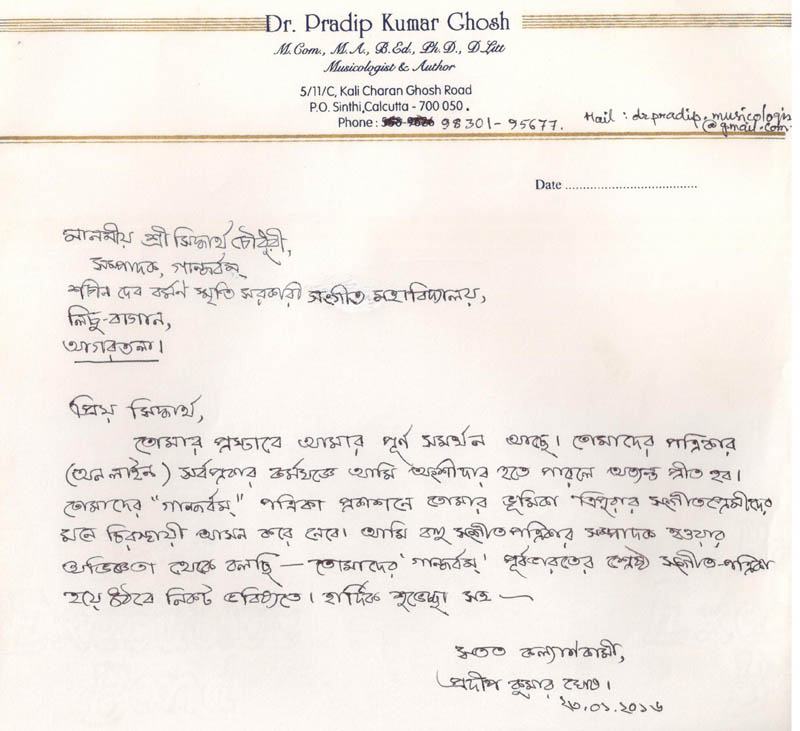 Dr. Pradip Kumar Ghosh
M.Com., M.A., B.Ed., Ph.D., D.Litt
Musicologist & Author
5/11/C, Kali Charan Ghosh Road
P.O. Sinthi, Calcutta - 700 050.
Phone: 98301-95677.
Mail : dr.pradip.musicologis
@gmail.com.
Date ....................................
মাননীয় শ্রী সিদ্ধার্থ চৌধুরী,
সম্পাদক, গান্ধর্বম্
শচীন দেব বর্মণ স্মৃতি সরকারী সংগীত মহাবিদ্যালয়,
লিচু-বাগান,
আগরতলা।
প্রিয় সিদ্ধার্থ,
তোমার প্রস্তাবে আমার পূর্ণ সমর্থন আছে। তোমাদের পত্রিকার
(অনলাইন) সর্বপ্রকার কর্মযজ্ঞে আমি অংশীদার হতে পারলে অত্যন্ত প্রীত হব।
তোমাদের "গান্ধর্বম্" পত্রিকা প্রকাশনে তোমার ভূমিকা ত্রিপুরার সংগীতপ্রেমীদের
মনে চিরস্থায়ী আসন করে নেবে। আমি বহু সংগীত পত্রিকার সম্পাদক হওয়ার
অভিজ্ঞতা থেকে বলছি — তোমাদের 'গান্ধর্বম্' পূর্বভারতের শ্রেষ্ঠ সংগীত-পত্রিকা
হয়ে উঠবে নিকট ভবিষ্যতে। হার্দিক শুভেচ্ছা সহ —
সতত কল্যাণকামী,
প্রদীপ কুমার ঘোষ।
২৩.০১.২০১৬